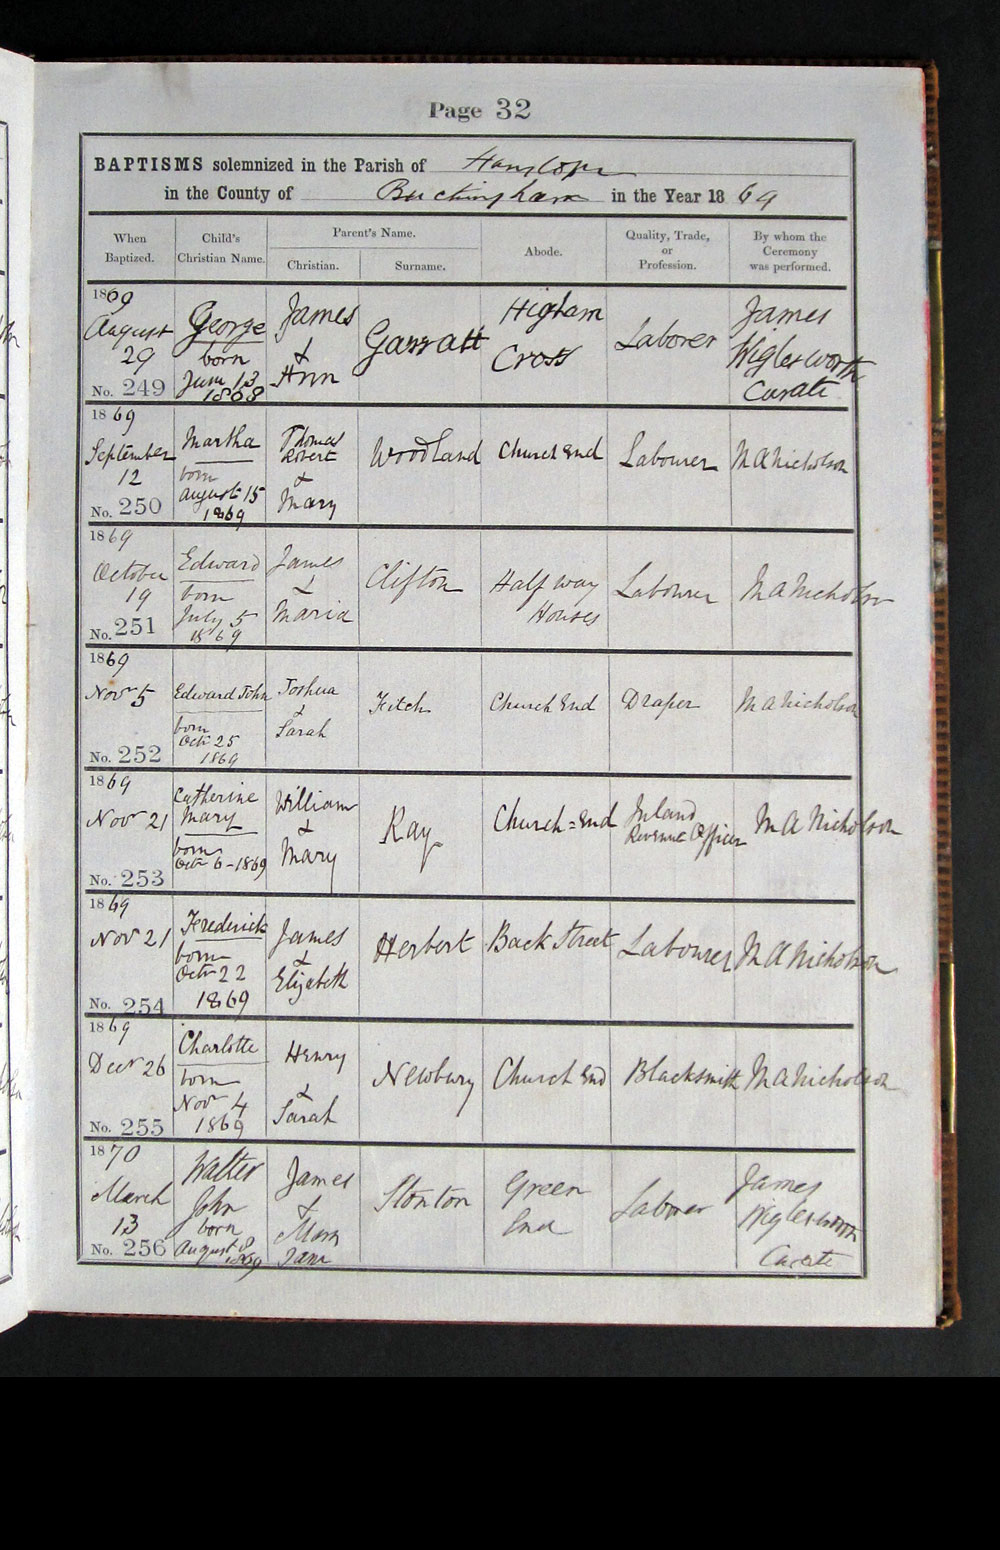 Page 32
BAPTISMS solemnized in the Parish of Hanslope
in the County of Buckingham in the Year 1869
When Baptized.
Child's Christian Name.
Parent's Name.
Christian.
Surname.
Abode.
Quality, Trade, or Profession.
By whom the Ceremony was performed.
1869
August
29
No. 249
George
born
June 13
1868
James
&
Ann
Garratt
Higham
Cross
Laborer
James
Wiglesworth
Curate
1869
September
12
No. 250
Martha
born
August 15
1869
Thomas
Robert
&
Mary
Woodland
Church End
Labourer
M A Nicholson
1869
October
19
No. 251
Edward
born
July 5
1869
James
&
Maria
Clifton
Half way
Houses
Labourer
M A Nicholson
1869
Novr 5
No. 252
Edward John
born
Octr 25
1869
Joshua
&
Sarah
Fitch
Church End
Draper
M A Nicholson
1869
Novr 21
No. 253
Catherine
Mary
born
Octr 6-1869
William
&
Mary
Kay
Church=End
Inland
Revenue Officer
M A Nicholson
1869
Novr 21
No. 254
Frederick
born
Octr 22
1869
James
&
Elizabeth
Herbert
Back Street
Labourer
M A Nicholson
1869
Decr 26
No. 255
Charlotte
born
Novr 4
1869
Henry
&
Sarah
Newbury
Church End
Blacksmith
M A Nicholson
1870
March
13
No. 256
Walter
John
born
August 8
1869
James
&
Mary
Jane
Stonton
Green
End
Laborer
James
Wiglesworth
Curate